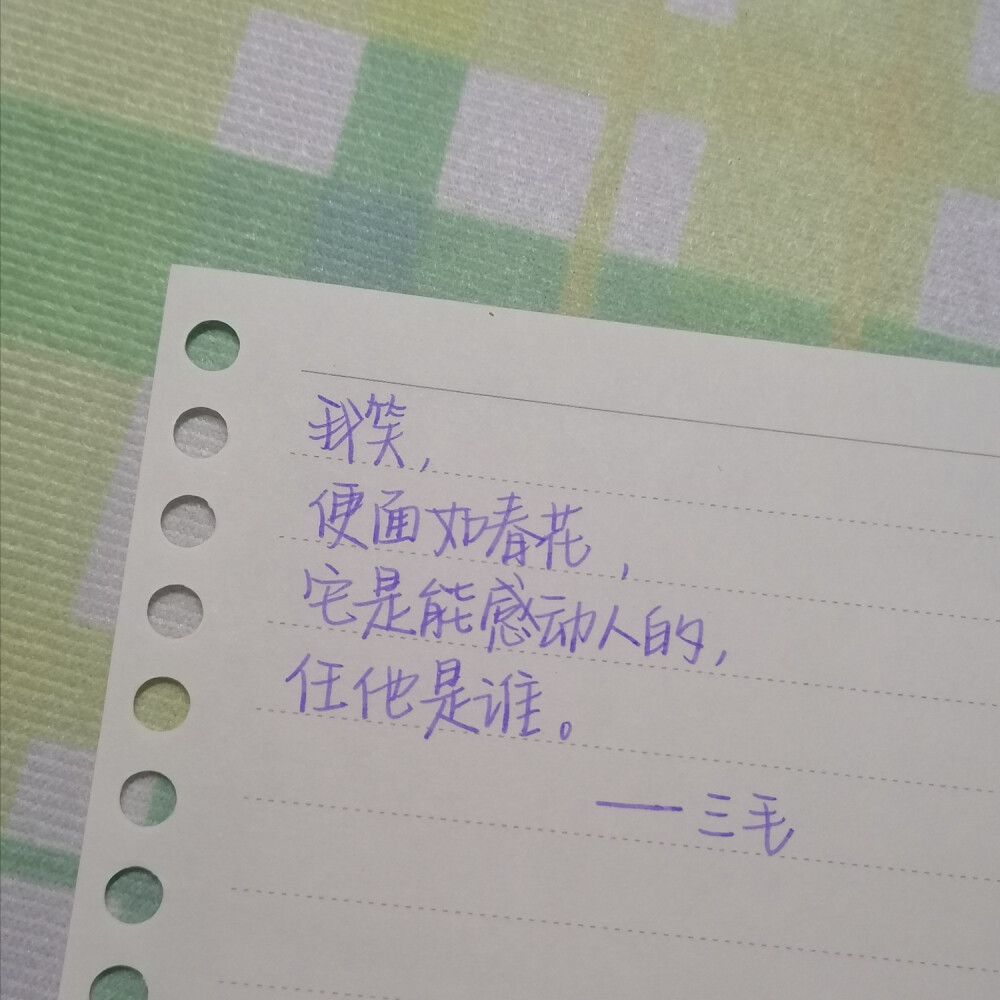 我笑，
便面如春花，
它是能感动人的，
任他是谁。
——三毛